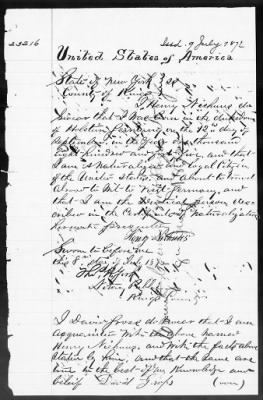 23216
Issd. 9 July 187
United States of America
State of New York } ss
County of Kings
I, Henry Niehaus do
swear that I was born in the
of Holstein Germany on the 13th day of
September in the year One thousand
eight hundred and, and that
I am a Naturalized and loyal Citizen
of the United States, and about to travel
abroad to wit to visit Germany, and
that I am the Identical person des
cribed in the Certificate of Naturalization
Sworn to before me
this 8th day of July 187
Notary Public
Kings County
I David Gross do swear that I am
acquainted with the above named
Henry Niehaus, and with the facts above
stated by him, and that the same are
true to the best of my Knowledge and
belief David Gross (over)